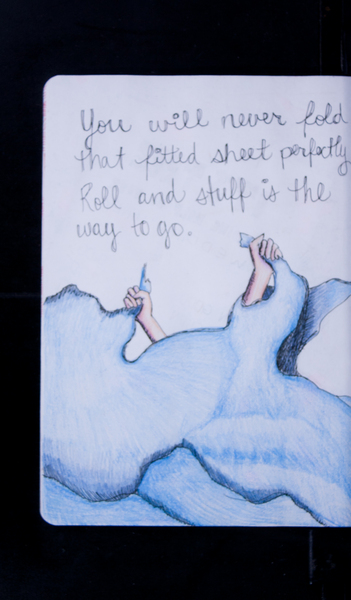 You will never fold
that fitted sheet perfectly
Roll and stuff is the
way to go.